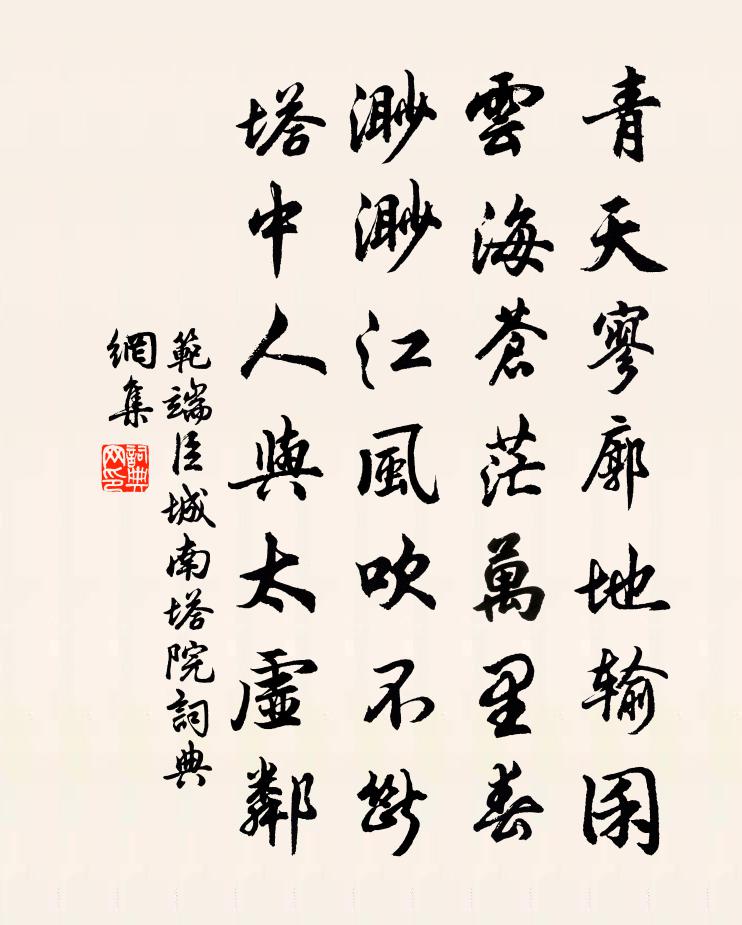 青天寥廓地輸囷
雲海蒼茫萬里春
渺渺江風吹不斷
塔中人與太虛鄰
範端臣城南塔院詞典
網集
詞典
网印